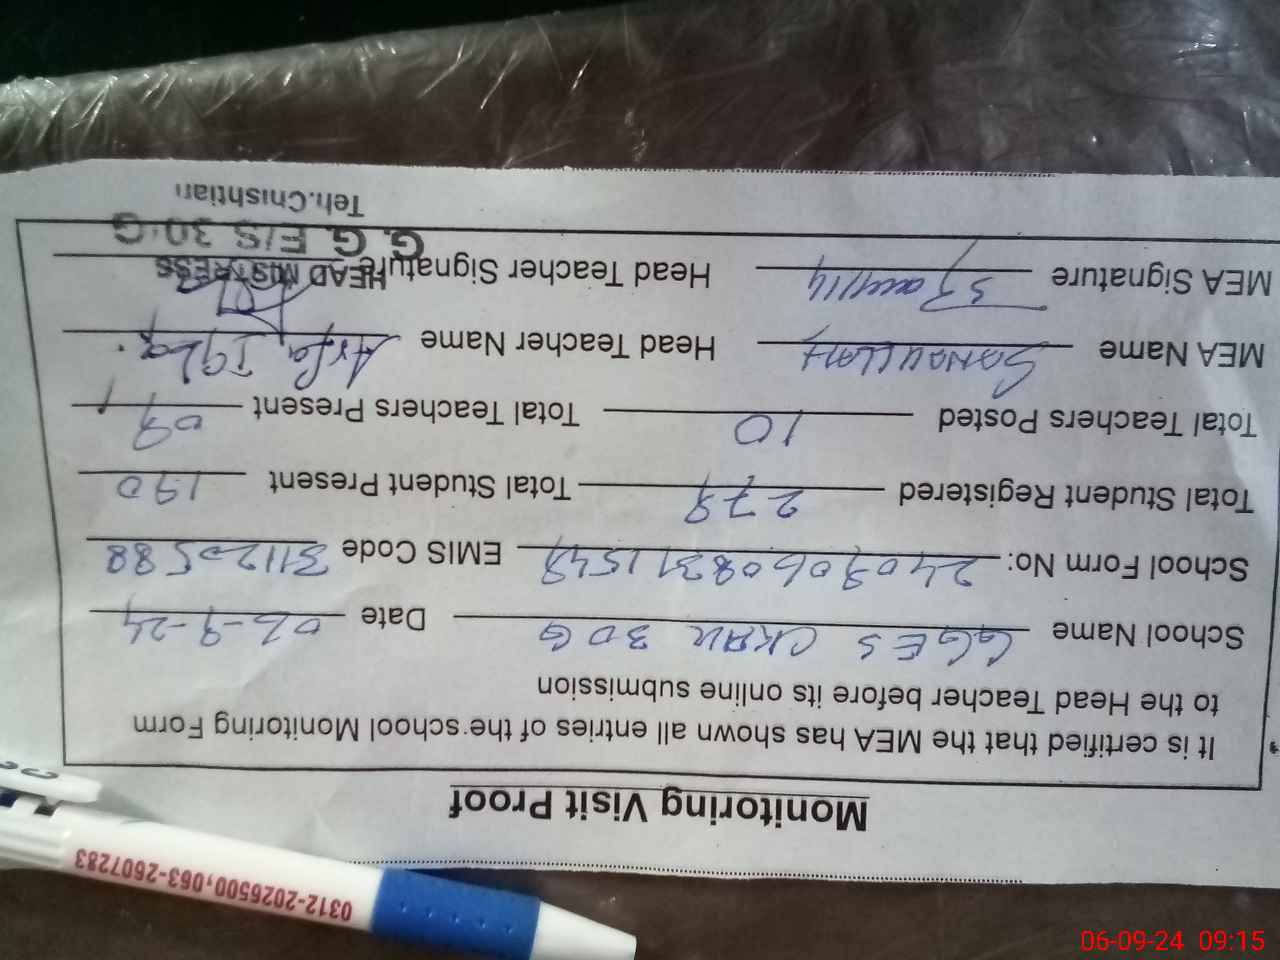 Monitoring Visit Proof
It is certified that the MEA has shown all entries of the school Monitoring Form
to the Head Teacher before its online submission
School Name GGES CHAK 30 G Date 06-9-24
School Form No: EMIS Code
Total Student Registered 279 Total Student Present 190
Total Teachers Posted 10 Total Teachers Present 09
MEA Name SANAULLAH Head Teacher Name Arfa Iqbal
MEA Signature Head Teacher Signature
HEAD MISTRESS
G. G. E/S 30-G
Teh.Chishtian
0312-2026500,063-2507283
06-09-24 09:15